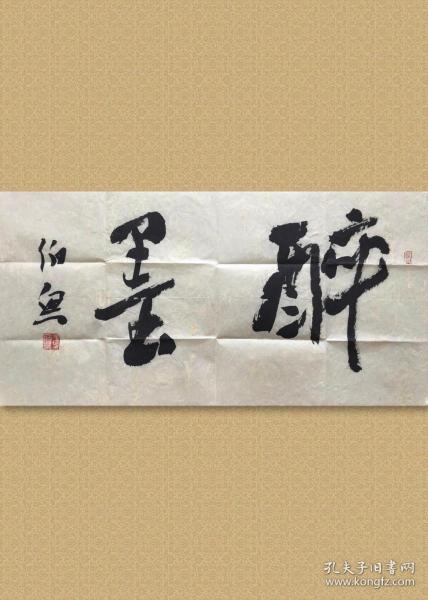 醉墨
伯兴
孔夫子旧书网
www.kongfz.com